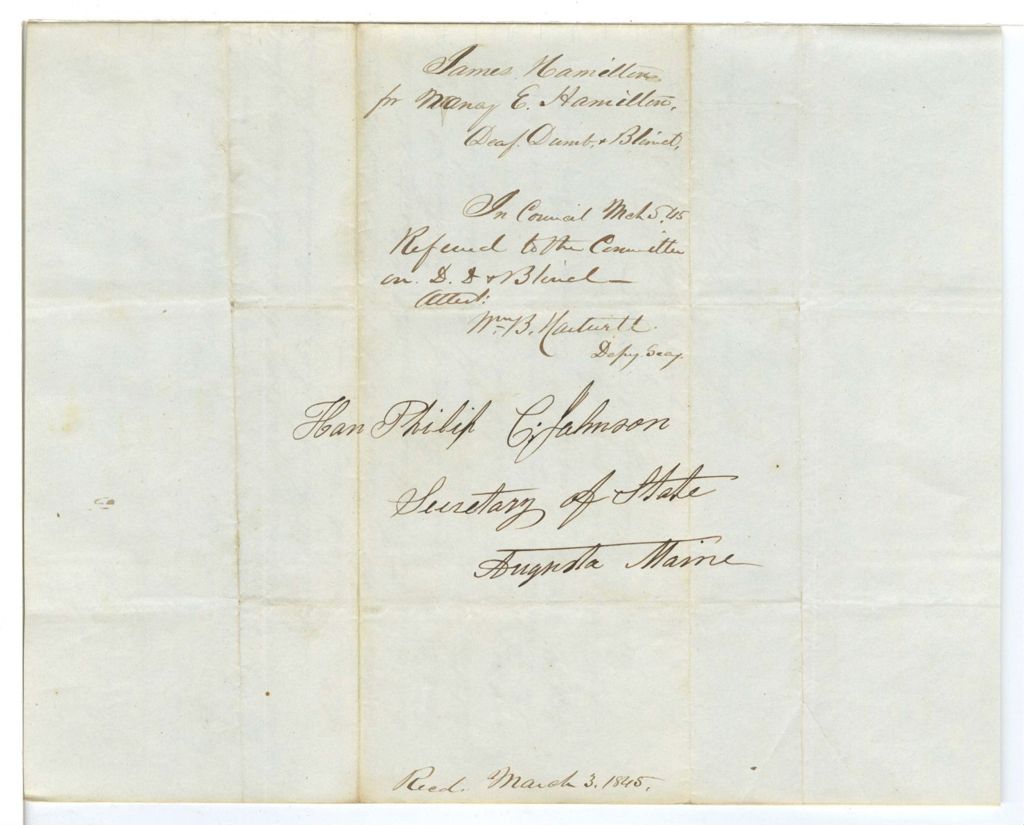 James Hamilton
for Nancy E. Hamilton,
Deaf. Dumb, & Blind,
In Council Mch 5, 45
Referred to the Committee
on D. D & Blind —
Attest:
Wm B. Hartwell
Depy Secy.
Hon Philip C. Johnson
Secretary of State
Augusta Maine
Recd. March 3. 1845.